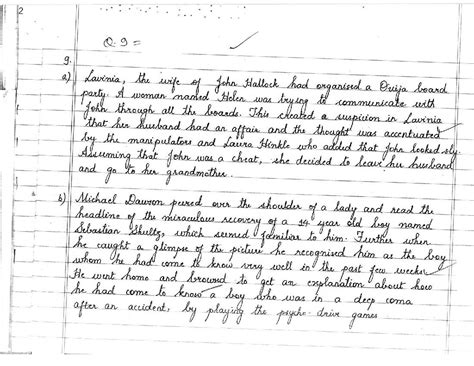 2
Q.9 =
9.
a) Lavinia, the wife of John Hallock had organised a Ouija board
party. A woman named Helen was trying to communicate with
John through all the boards. This created a suspicion in Lavinia
that her husband had an affair and the thought was accentuated
by the manipulators and Laura Hinkle who added that John looked sly.
Assuming that John was a cheat, she decided to leave her husband
and go to her grandmother.
b) Michael Dawson peered over the shoulder of a lady and read the
headline of the miraculous recovery of a 14 year old boy named
Sebastian Shultz, which seemed familiar to him. Further when
he caught a glimpse of the picture he recognised him as the boy
whom he had come to know very well in the past few weeks.
He went home and to get an explanation about how
he had come to know a boy who was in a deep coma
after an accident, by playing the psycho-drive games